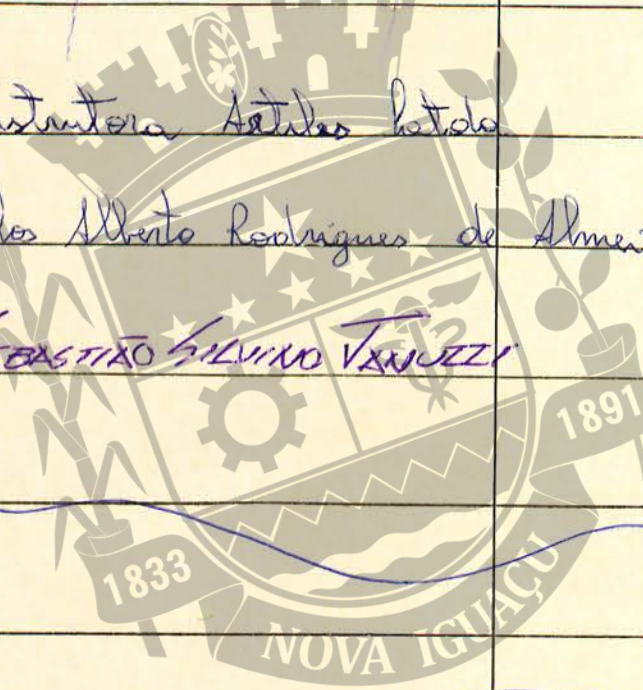 strutora Artiles
los Alberto Rodrigues de Almei
EBASTIÃO SILVINO VANUZZI
1891
1833
NOVA IGUAÇU